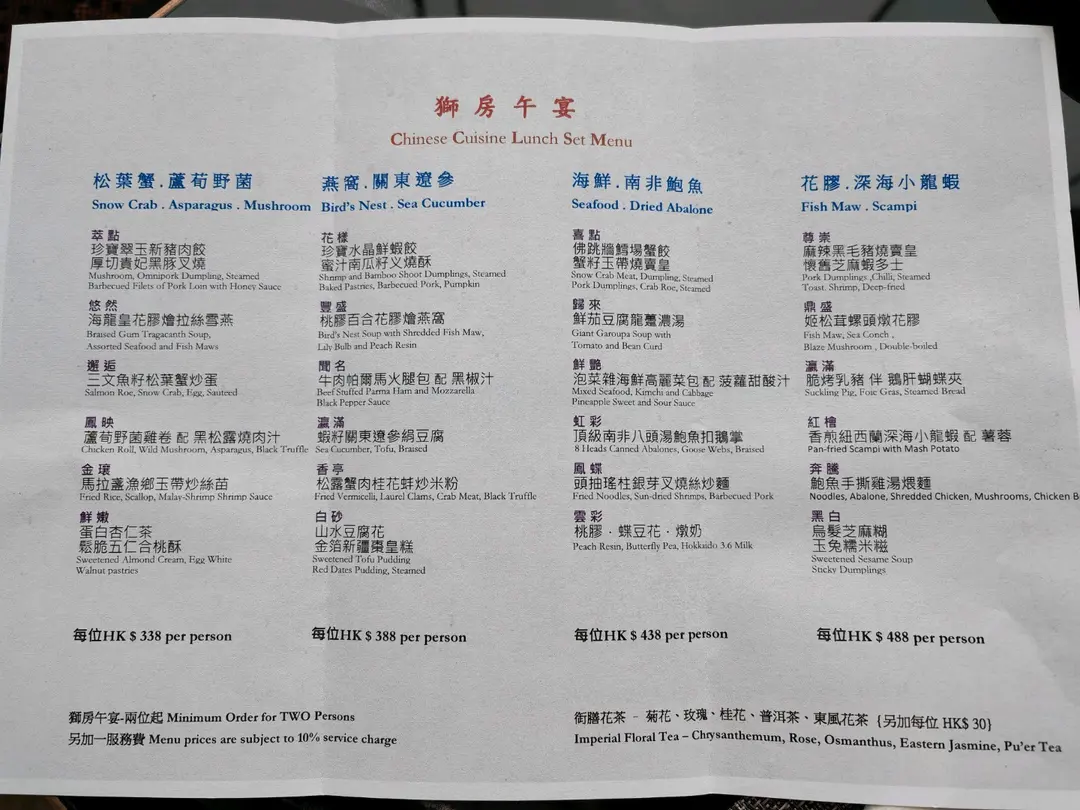 獅房午宴
Chinese Cuisine Lunch Set Menu
松葉蟹.蘆荀野菌
Snow Crab . Asparagus . Mushroom
萃點
珍寶翠玉新豬肉餃
厚切貴妃黑豚叉燒
Mushroom, Omnipork Dumpling, Steamed
Barbecued Filets of Pork Loin with Honey Sauce
悠然
海龍皇花膠燴拉絲雪燕
Braised Gum Tragacanth Soup,
Assorted Seafood and Fish Maws
邂逅
三文魚籽松葉蟹炒蛋
Salmon Roe, Snow Crab, Egg, Sauteed
鳳映
蘆荀野菌雞卷 配 黑松露燒肉汁
Chicken Roll, Wild Mushroom, Asparagus, Black Truffle
金瓌
馬拉盞漁鄉玉帶炒絲苗
Fried Rice, Scallop, Malay-Shrimp Shrimp Sauce
鮮嫩
蛋白杏仁茶
鬆脆五仁合桃酥
Sweetened Almond Cream, Egg White
Walnut pastries
每位HK $ 338 per person
燕窩.關東遼參
Bird's Nest . Sea Cucumber
花樣
珍寶水晶鮮蝦餃
蜜汁南瓜籽义燒酥
Shrimp and Bamboo Shoot Dumplings, Steamed
Baked Pastries, Barbecued Pork, Pumpkin
豐盛
桃膠百合花膠燴燕窩
Bird's Nest Soup with Shredded Fish Maw,
Lily Bulb and Peach Resin
聞名
牛肉帕爾馬火腿包 配 黑椒汁
Beef Stuffed Parma Ham and Mozzarella
Black Pepper Sauce
瀛滿
蝦籽關東遼參絹豆腐
Sea Cucumber, Tofu, Braised
香亭
松露蟹肉桂花蚌炒米粉
Fried Vermicelli, Laurel Clams, Crab Meat, Black Truffle
白砂
山水豆腐花
金箔新疆棗皇糕
Sweetened Tofu Pudding
Red Dates Pudding, Steamed
每位HK $ 388 per person
海鮮.南非鮑魚
Seafood . Dried Abalone
喜點
佛跳牆鱈場蟹餃
蟹籽玉帶燒賣皇
Snow Crab Meat, Dumpling, Steamed
Pork Dumplings, Crab Roe, Steamed
歸來
鮮茄豆腐龍躉濃湯
Giant Garoupa Soup with
Tomato and Bean Curd
鮮艷
泡菜雜海鮮高麗菜包 配 菠蘿甜酸汁
Mixed Seafood, Kimchi and Cabbage
Pineapple Sweet and Sour Sauce
虹彩
頂級南非八頭湯鮑魚扣鵝掌
8 Heads Canned Abalones, Goose Webs, Braised
鳳蝶
頭抽瑤柱銀芽叉燒絲炒麵
Fried Noodles, Sun-dried Shrimps, Barbecued Pork
雲彩
桃膠．蝶豆花．燉奶
Peach Resin, Butterfly Pea, Hokkaido 3.6 Milk
每位HK $ 438 per person
花膠.深海小龍蝦
Fish Maw . Scampi
尊崇
麻辣黑毛豬燒賣皇
懷舊芝麻蝦多士
Pork Dumplings ,Chilli, Steamed
Toast. Shrimp, Deep-fried
鼎盛
姬松茸螺頭燉花膠
Fish Maw, Sea Conch ,
Blaze Mushroom , Double-boiled
瀛滿
脆烤乳豬 伴 鵝肝蝴蝶夾
Suckling Pig, Foie Gras, Steamed Bread
紅檜
香煎紐西蘭深海小龍蝦 配 薯蓉
Pan-fried Scampi with Mash Potato
奔騰
鮑魚手撕雞湯煨麵
Noodles, Abalone, Shredded Chicken, Mushrooms, Chicken B
黑白
烏髮芝麻糊
玉兔糯米糍
Sweetened Sesame Soup
Sticky Dumplings
每位HK $ 488 per person
獅房午宴-兩位起 Minimum Order for TWO Persons
另加一服務費 Menu prices are subject to 10% service charge
銜膳花茶 – 菊花、玫瑰、桂花、普洱茶、東風花茶 {另加每位 HK$ 30}
Imperial Floral Tea – Chrysanthemum, Rose, Osmanthus, Eastern Jasmine, Pu'er Tea